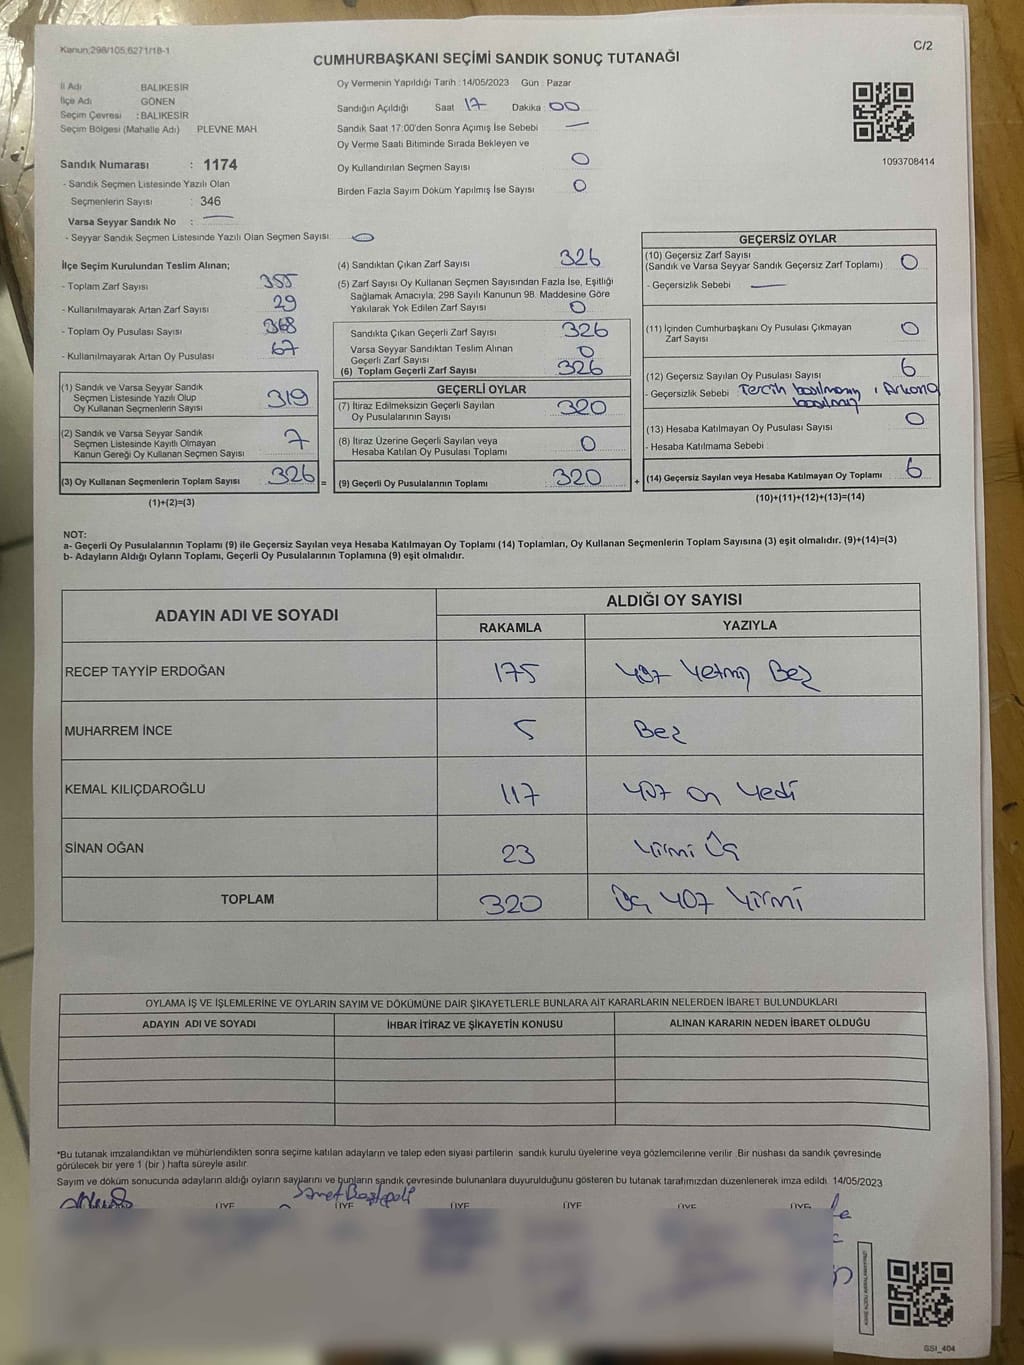 Kanun;298/105,6271/18-1
C/2
CUMHURBAŞKANI SEÇİMİ SANDIK SONUÇ TUTANAĞI
İl Adı BALIKESİR
İlçe Adı GÖNEN
Seçim Çevresi : BALIKESİR
Seçim Bölgesi (Mahalle Adı) PLEVNE MAH
Sandık Numarası : 1174
- Sandık Seçmen Listesinde Yazılı Olan
Seçmenlerin Sayısı : 346
Varsa Seyyar Sandık No : —
- Seyyar Sandık Seçmen Listesinde Yazılı Olan Seçmen Sayısı: 0
Oy Vermenin Yapıldığı Tarih : 14/05/2023 Gün : Pazar
Sandığın Açıldığı Saat 17 Dakika : 00
Sandık Saat 17:00'den Sonra Açımış İse Sebebi —
Oy Verme Saati Bitiminde Sırada Bekleyen ve
Oy Kullandırılan Seçmen Sayısı 0
Birden Fazla Sayım Döküm Yapılmış İse Sayısı 0
1093708414
İlçe Seçim Kurulundan Teslim Alınan;
- Toplam Zarf Sayısı 355
- Kullanılmayarak Artan Zarf Sayısı 29
- Toplam Oy Pusulası Sayısı 368
- Kullanılmayarak Artan Oy Pusulası 67
(1) Sandık ve Varsa Seyyar Sandık
Seçmen Listesinde Yazılı Olup
Oy Kullanan Seçmenlerin Sayısı 319
(2) Sandık ve Varsa Seyyar Sandık
Seçmen Listesinde Kayıtlı Olmayan
Kanun Gereği Oy Kullanan Seçmen Sayısı 7
(3) Oy Kullanan Seçmenlerin Toplam Sayısı 326 =
(1)+(2)=(3)
(4) Sandıktan Çıkan Zarf Sayısı 326
(5) Zarf Sayısı Oy Kullanan Seçmen Sayısından Fazla İse, Eşitliği
Sağlamak Amacıyla, 298 Sayılı Kanunun 98. Maddesine Göre
Yakılarak Yok Edilen Zarf Sayısı 0
Sandıkta Çıkan Geçerli Zarf Sayısı 326
Varsa Seyyar Sandıktan Teslim Alınan
Geçerli Zarf Sayısı 0
(6) Toplam Geçerli Zarf Sayısı 326
GEÇERLİ OYLAR
(7) İtiraz Edilmeksizin Geçerli Sayılan
Oy Pusulalarının Sayısı 320
(8) İtiraz Üzerine Geçerli Sayılan veya
Hesaba Katılan Oy Pusulası Toplamı 0
(9) Geçerli Oy Pusulalarının Toplamı 320 +
GEÇERSİZ OYLAR
(10) Geçersiz Zarf Sayısı
(Sandık ve Varsa Seyyar Sandık Geçersiz Zarf Toplamı) 0
- Geçersizlik Sebebi —
(11) İçinden Cumhurbaşkanı Oy Pusulası Çıkmayan
Zarf Sayısı 0
(12) Geçersiz Sayılan Oy Pusulası Sayısı 6
- Geçersizlik Sebebi Tercih
(13) Hesaba Katılmayan Oy Pusulası Sayısı 0
- Hesaba Katılmama Sebebi
(14) Geçersiz Sayılan veya Hesaba Katılmayan Oy Toplamı 6
(10)+(11)+(12)+(13)=(14)
NOT:
a- Geçerli Oy Pusulalarının Toplamı (9) ile Geçersiz Sayılan veya Hesaba Katılmayan Oy Toplamı (14) Toplamları, Oy Kullanan Seçmenlerin Toplam Sayısına (3) eşit olmalıdır. (9)+(14)=(3)
b- Adayların Aldığı Oyların Toplamı, Geçerli Oy Pusulalarının Toplamına (9) eşit olmalıdır.
ADAYIN ADI VE SOYADI ALDIĞI OY SAYISI
RAKAMLA YAZIYLA
RECEP TAYYİP ERDOĞAN 175 yüz yetmiş Beş
MUHARREM İNCE 5 Beş
KEMAL KILIÇDAROĞLU 117 yüz on yedi
SİNAN OĞAN 23 yirmi Üç
TOPLAM 320 Üç yüz yirmi
OYLAMA İŞ VE İŞLEMLERİNE VE OYLARIN SAYIM VE DÖKÜMÜNE DAİR ŞİKAYETLERLE BUNLARA AİT KARARLARIN NELERDEN İBARET BULUNDUKLARI
ADAYIN ADI VE SOYADI İHBAR İTİRAZ VE ŞİKAYETİN KONUSU ALINAN KARARIN NEDEN İBARET OLDUĞU
*Bu tutanak imzalandıktan ve mühürlendikten sonra seçime katılan adayların ve talep eden siyasi partilerin sandık kurulu üyelerine veya gözlemcilerine verilir. Bir nüshası da sandık çevresinde
görülecek bir yere 1 (bir ) hafta süreyle asılır.
Sayım ve döküm sonucunda adayların aldığı oyların sayılarını ve bunların sandık çevresinde bulunanlara duyurulduğunu gösteren bu tutanak tarafımızdan düzenlenerek imza edildi. 14/05/2023
ÜYE ÜYE ÜYE ÜYE ÜYE ÜYE
SSI_404